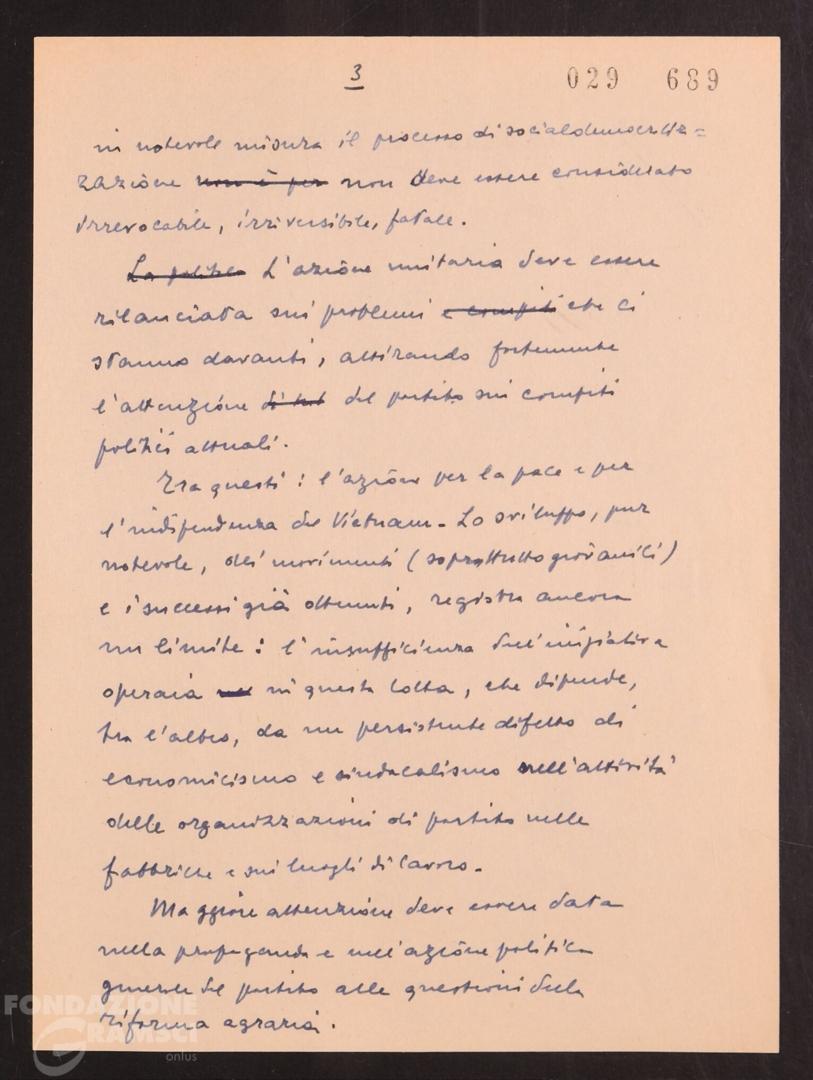 3
029 689
in notevole misura il processo di socialdemocratiz=
zazione non è per non deve essere considerato
irrevocabile, irriversibile, fatale.
La politica L'azione unitaria deve essere
rilanciata sui problemi e compiti che ci
stanno davanti, attirando fortemente
l'attenzione di tut del partito sui compiti
politici attuali.
Tra questi: l'azione per la pace e per
l'indipendenza del Vietnam. Lo sviluppo, pur
notevole, dei movimenti (soprattutto giovanili)
e i successi già ottenuti, registra ancora
un limite: l'insufficienza dell'iniziativa
operaia in questa lotta, che dipende,
tra l'altro, da un persistente difetto di
economicismo e sindacalismo nell'attività
delle organizzazioni di partito nelle
fabbriche e sui luoghi di lavoro.
Maggiore attenzione deve essere data
nella propaganda e nell'azione politica
generale del partito alle questioni della
riforma agraria.
FONDAZIONE
GRAMSCI
onlus